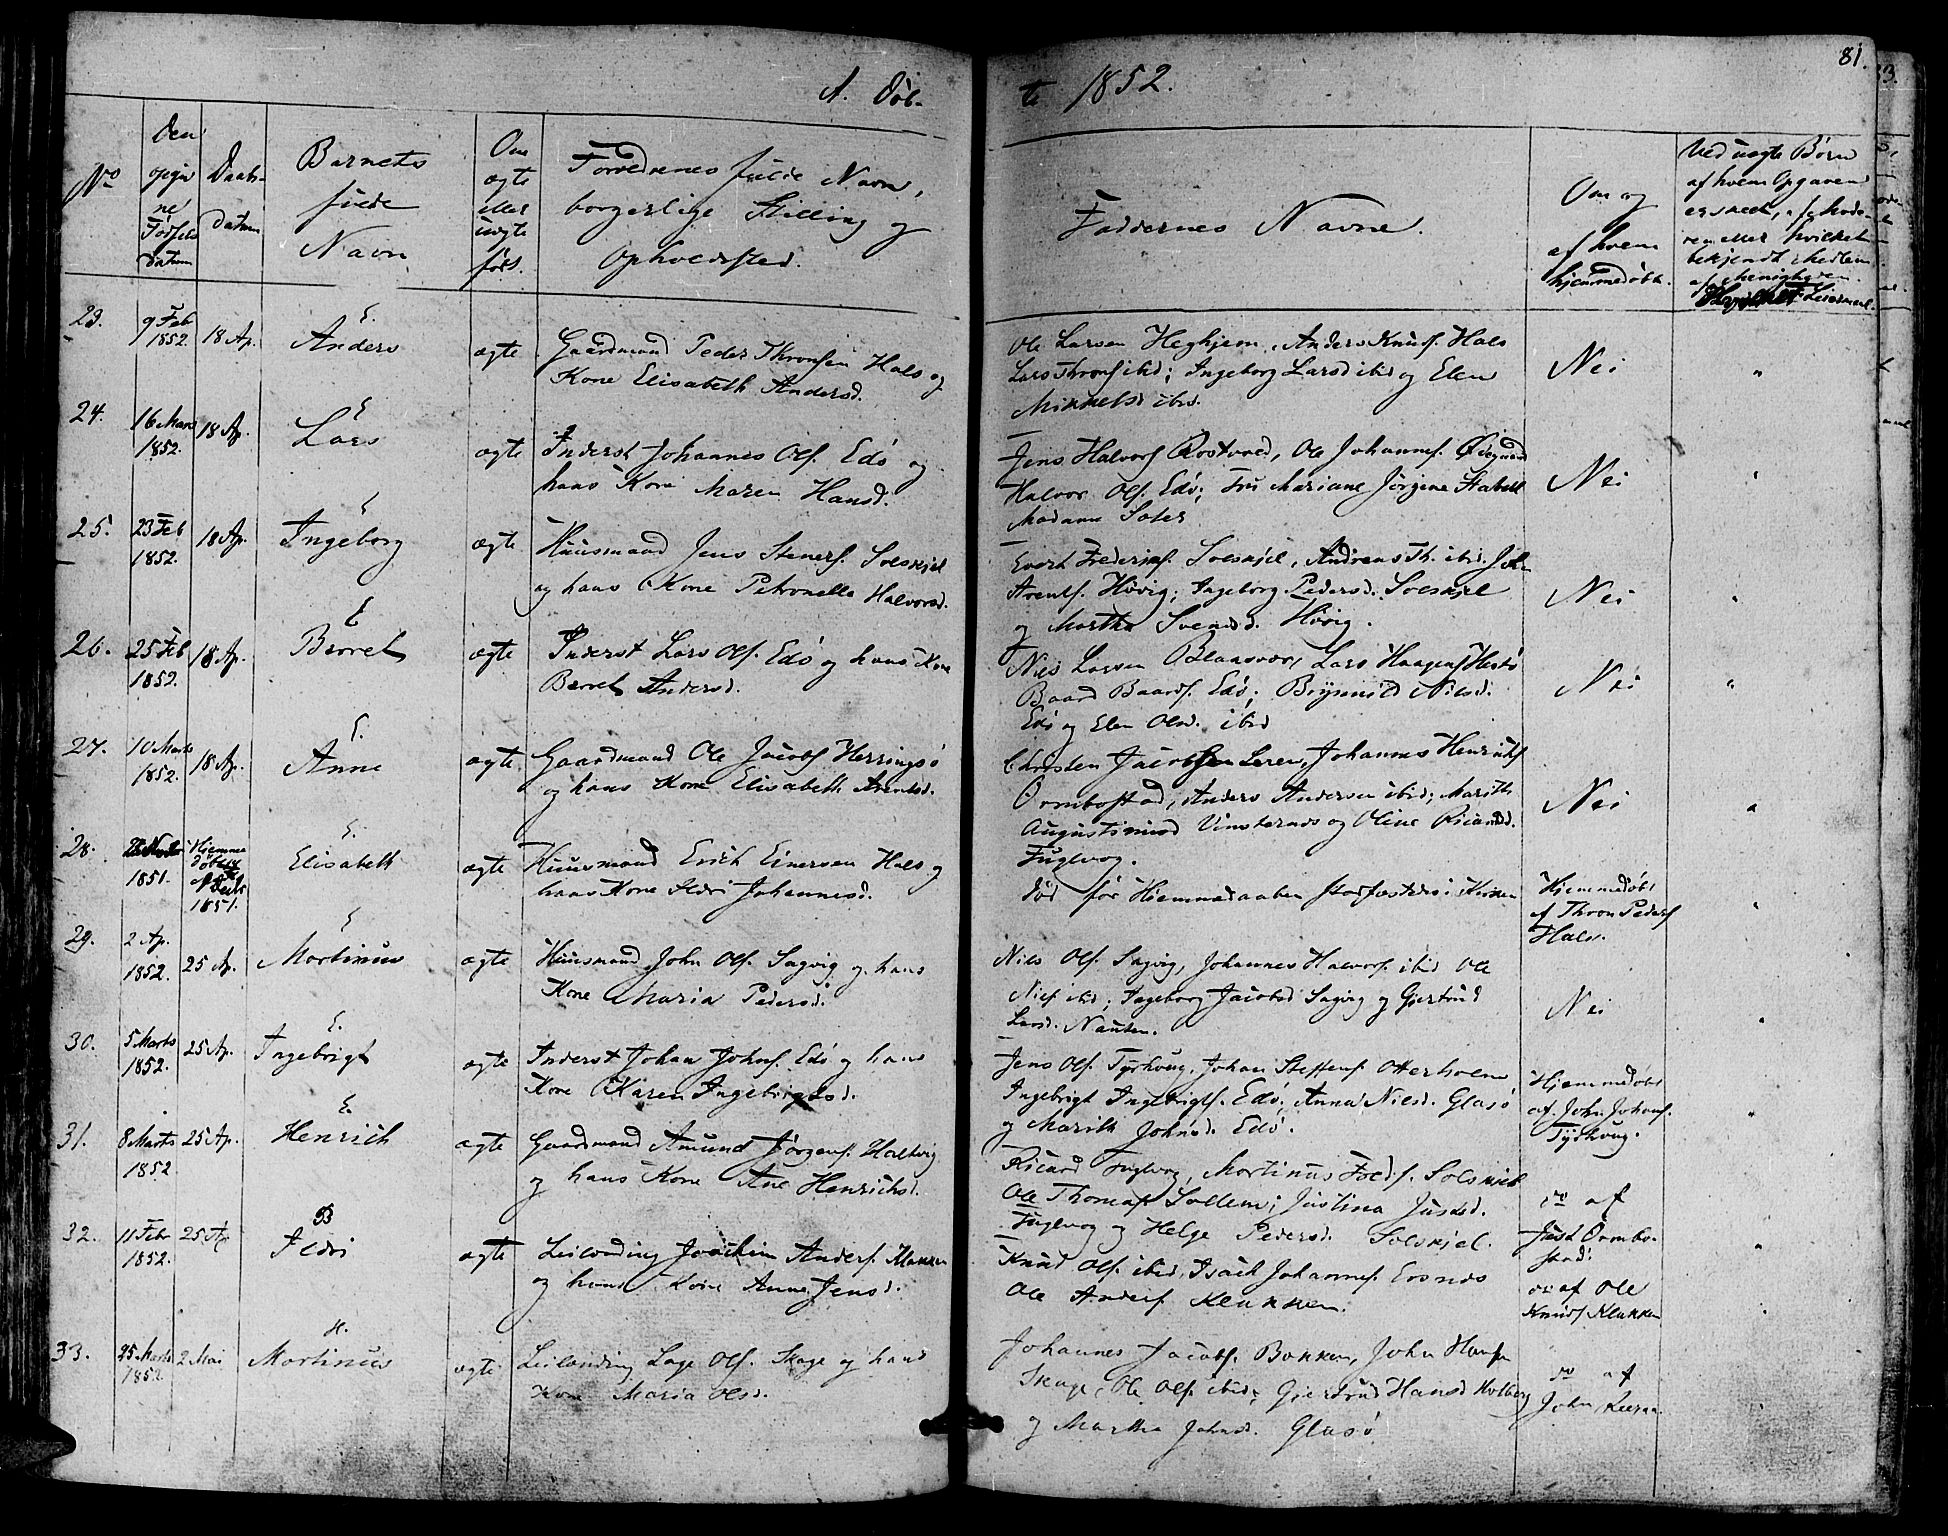 81.
A. Döb-
te 1852.
No
Den
opgiv
ne
Födsels
datum
Daabs-
Datum
Barnets
fulde
Navn
Om
ægte
eller
uægte
født.
Forældrenes fulde Navn,
borgerlige Stilling og
Opholdssted.
Faddernes Navne.
Om og
af hvem
hjemmedöbt.
Ved uægte Børn
af hvem Opgaven
er skeet, af
eller hvilket
bekjendt Medlem
af Menigheden
23.
9 Feb
1852.
18 Ap.
E.
Anders
ægte
Gaardmand Peder Thronsen Hals og
Kone Elisabeth Andersd.
Ole Larsen Heghjem, Anders Knuds. Hals
Lars Throns. ibid; Ingeborg Larsd ibid og Elen
Mikkelsd ibid.
Nei
"
24.
16 Mars
1852.
18 Ap.
E
Lars
ægte
Inderst Johannes Ols. Edö og
hans Kone Maren Hansd.
Jens Halvors Rostvold, Ole Johannes. Ødegaard
Halvor Ols. Edö; Fru Mariane Jörgene Stabell
Madame Soter
Nei
"
25.
23 Feb
1852.
18 Ap.
E
Ingeborg
ægte
Huusmand Jens Steners. Solskjel
og hans Kone Petronelle Halvorsd.
Evert Frederiks. Solskjel, Andreas Th. ibid. Joh.
Arents. Hövig; Ingeborg Pedersd. Solskjel
og Martha Svensd. Hövig.
Nei
"
26.
25 Feb
1852.
18 Ap.
E
Berret
ægte
Inderst Lars Ols. Edö og hans Kone
Berret Andersd.
Nils Larsen Blaasvær, Lars Haagens Hestö
Baard Baards. Edö; Brynnild Nilsd.
Edö og Elen Olsd. ibid
Nei
"
27.
10 Marts
1852.
18 Ap.
E.
Anne
ægte
Gaardmand Ole Jacobs Herringsö
og hans Kone Elisabeth Arentsd.
Christen Jacobsen Leren, Johannes Henriks
Ormbostad, Anders Andersen ibid; Marith
Augustinusd Vinsternes og Oline Ricardsd.
Fuglvog.
Nei
"
28.
1851.
Hjemme
döbt
1851.
E.
Elisabeth
ægte
Huusmand Erich Einersen Hals og
hans Kone Ildri Johannesd.
död før Hjemmedaaben stadfæstedes i Kirken
Hjemmedöbt
af Thron Peders
Hals.
"
29.
2 Ap.
1852.
25 Ap.
E
Mortinus
ægte
Huusmand John Ols. Sagvig og hans
Kone Maria Pedersd.
Nils Ols. Sagvig, Johannes Halvors. ibid Ole
Nils ibid; Ingeborg Jacobsd Sagvig og Gjertrud
Larsd. Nausten.
Nei
"
30.
5 Marts
1852.
25 Ap.
E.
Ingebrigt
ægte
Inderst Johan Johns. Edö og hans
Kone Karen Ingebrigtsd.
Jens Ols. Tyrhoug, Johan Steffens. Otterholm
Ingebrigt Ingebrigts. Edö; Anna Nilsd. Glasö
og Marith Johnsd. Edö.
Hjemmedöbt
af John Johans.
Tyrhoug.
"
31.
8 Marts
1852
25 Ap.
E.
Henrich
ægte
Gaardmand Amund Jørgens. Haltvig
og hans Kone Ane Henrichsd.
Ricard Fuglvog, Mortinus Iods. Solskjel
Ole Thomas Sollem; Justina Jusdsd.
Fuglvog og Helge Pedersd. Solskjel.
do af
Just Ormbo-
stad.
"
32.
11 Feb
1852.
25 Ap
B
Ildri
ægte
Leilænding Joachim Anders. Klakken
og hans Kone Anne Jensd.
Knud Ols. ibid, Isach Johannes. Ersnes
Ole Anders Klakken.
do af Ole
Knuds Klakken
"
33.
25 Marts
1852
2 Mai
H.
Mortinus
ægte
Leilænding Lage Ols. Skage og hans
Kone Maria Olsd.
Johannes Jacobs. Bakken, John Hans
Skage, Ole Ols. ibid; Gjertrud Hansd Holberg
og Martha Johnsd. Glasö
do af
John
"